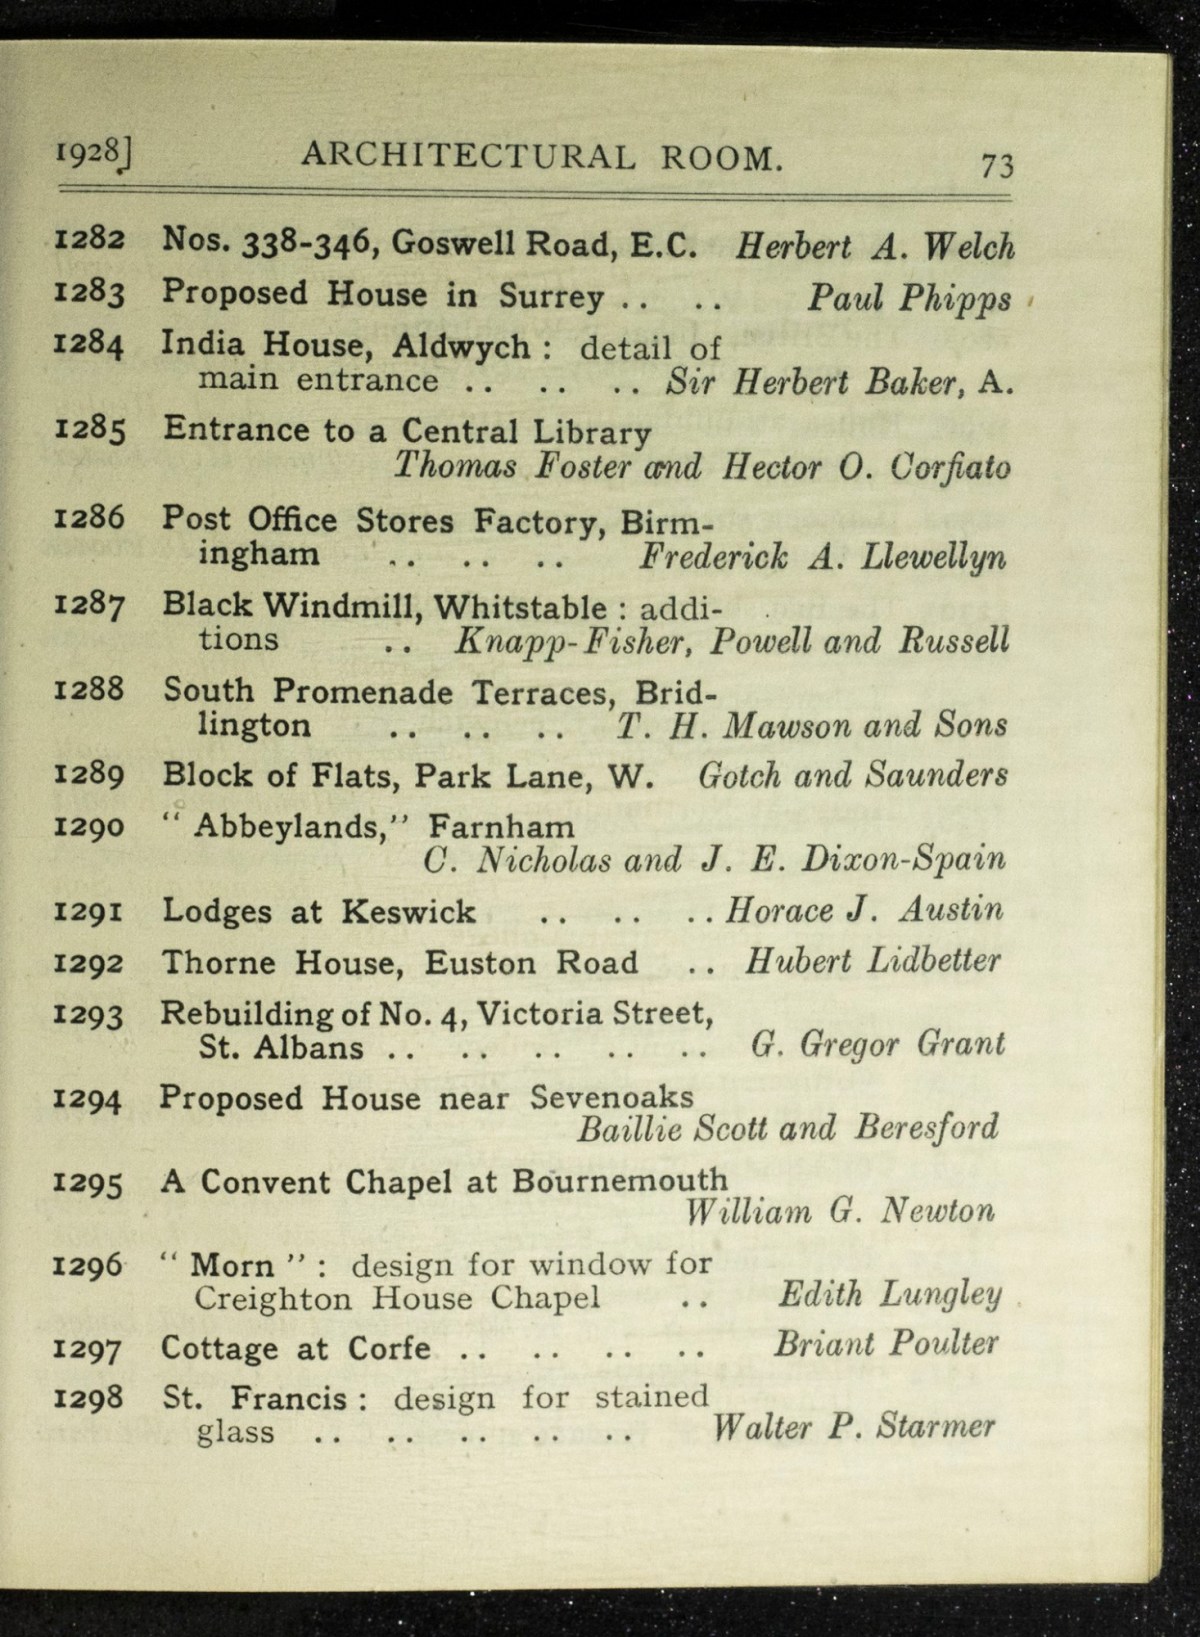 1928] ARCHITECTURAL ROOM. 73
1282 Nos. 338-346, Goswell Road, E.C. Herbert A. Welch
1283 Proposed House in Surrey .. .. Paul Phipps
1284 India House, Aldwych : detail of
main entrance .. .. .. Sir Herbert Baker, A.
1285 Entrance to a Central Library
Thomas Foster and Hector O. Corfiato
1286 Post Office Stores Factory, Birm-
ingham .. .. .. Frederick A. Llewellyn
1287 Black Windmill, Whitstable : addi-
tions .. Knapp-Fisher, Powell and Russell
1288 South Promenade Terraces, Brid-
lington .. .. .. T. H. Mawson and Sons
1289 Block of Flats, Park Lane, W. Gotch and Saunders
1290 “ Abbeylands,” Farnham
C. Nicholas and J. E. Dixon-Spain
1291 Lodges at Keswick .. .. .. Horace J. Austin
1292 Thorne House, Euston Road .. Hubert Lidbetter
1293 Rebuilding of No. 4, Victoria Street,
St. Albans .. .. .. .. .. G. Gregor Grant
1294 Proposed House near Sevenoaks
Baillie Scott and Beresford
1295 A Convent Chapel at Bournemouth
William G. Newton
1296 “ Morn ” : design for window for
Creighton House Chapel .. Edith Lungley
1297 Cottage at Corfe .. .. .. .. Briant Poulter
1298 St. Francis : design for stained
glass .. .. .. .. .. Walter P. Starmer